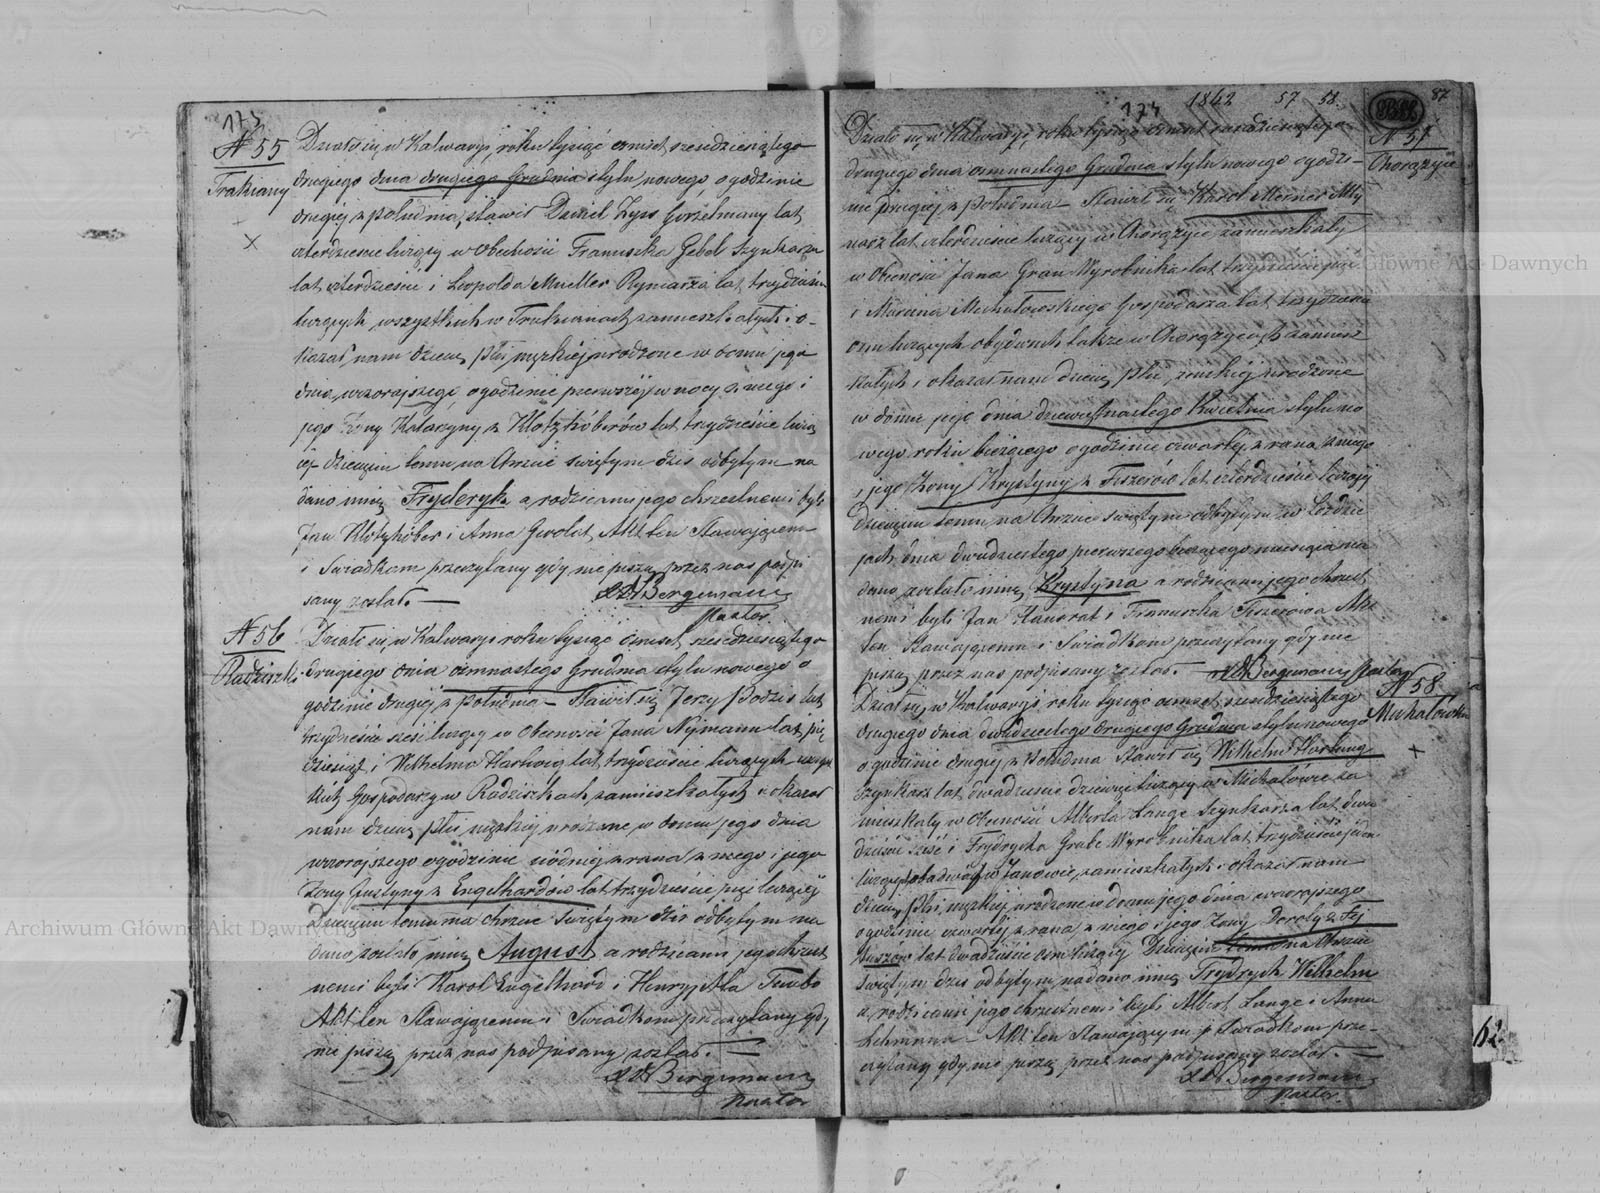 173
N 55
Trakiany
Działo się w Kalwaryi, roku tysiąc ośmset sześdziesiątego
drugiego dnia drugiego Grudnia stylu nowego, o godzinie
drugiéj z południa, stawił Daniel Zyss Gorzelniany lat
czterdzieście liczący w Obecności Franciszka Gebel Szynkarza
lat czterdzieście i Leopolda Mueller Rymarza lat trzydzieści
liczących, wszystkich w Trakianach zamieszkałych i o-
kazał nam dziecię płci męzkiéj urodzone w domu jego
dnia wczorajszego, o godzinie pierwszéj w nocy z niego i
jego Żony Katarzyny z Klotzhöberów lat trzydzieście liczą
céj dziecięciu temu na Chrzcie świętym dziś odbytym na
dano imię Fryderyk a rodzicami jego chrzestnemi byli
Jan Klotzhöber i Anna Akt ten Stawającemu
i Świadkom przeczytany gdy nie piszą przez nas podpi
sany został. —
Bergemann
Pastor
N 56
Radziszki
Działo się w Kalwaryi roku tysiąc ośmset sześdziesiątego
drugiego dnia osmnastego Grudnia stylu nowego o
godzinie drugiéj z południa — Stawił się Jerzy Podzis lat
trzydzieście sześć liczący w Obecności Jana Nejmann lat pię
dziesiąt i Wilhelma Hartwig lat trzydzieście liczących
Gospodarzy w Radziszkach zamieszkałych i okazał
nam dziecię płci męzkiéj urodzone w domu jego dnia
wczorajszego o godzinie siódméj z rana z niego i jego
Żony Gustyny z Engelhardów lat trzydzieście pięć liczącéj
Dziecięciu temu na chrzcie Świętym dziś odbytym na
dano zostało imię August a rodzicami jego chrzest
nemi byli Karol Engelhard i Henryjetta
Akt ten Stawającemu i Świadkom przeczytany gdy
nie piszą przez nas podpisany został. —
Bergemann
Pastor
174 1862 57 58. 87
N 57
Chorążyce
Działo się w Kalwaryi, roku tysiąc ośmset sześdziesiątego
drugiego dnia osmnastego Grudnia stylu nowego o godzi-
nie drugiej z południa — Stawił się Karol Meiner Mły
narz lat czterdzieście liczący w Chorążyce zamieszkały
w Obecności Jana Gran Wyrobnika lat
i Marcina Michałowskiego Gospodarza lat trzydzieści
osm liczących obydwuch także w Chorążycach zamiesz
kałych i okazał nam dziecię płci żeńskiej urodzone
w domu jego dnia dziewiętnastego Kwietnia stylu no
wego roku bieżącego o godzinie czwartéj z rana z niego
i jego Żony Krystyny z Fiszerów lat czterdzieście liczącéj
Dziecięciu temu na Chrzcie świętym odbytym w Łoździe
jach dnia dwudziestego pierwszego bieżącego miesiąca na
dano zostało imię Krystyna a rodzicami jego chrzest
nemi byli Jan Hanorat i Franciszka Fiszerowa Akt
ten Stawającemu i Świadkom przeczytany gdy nie
piszą przez nas podpisany został. — Bergemann Pastor
N 58
Michałówka
Działo się w Kalwaryi roku tysiąc ośmset sześdziesiątego
drugiego dnia dwudziestego drugiego Grudnia stylu nowego
o godzinie drugiéj z Południa Stawił się Wilhelm Hartung
Szynkarz lat dwadzieście dziewięć liczący w Michałówce za
mieszkały w Obecności Alberta Lange Szynkarza lat dwa
dzieście sześć i Frydrycha Grabe Wyrobnika lat trzydzieście jeden
liczących obadwóch w Janówie zamieszkałych i okazał nam
dziecię płci męzkiéj urodzone w domu jego dnia wczorajszego
o godzinie czwartéj z rana z niego i jego Żony Doroty z Fej
lat dwadzieście osm liczącéj Dziecięciu temu na Chrzcie
świętym dziś odbytym nadano imię Frydrych Wilhelm
a rodzicami jego chrzestnemi byli Albert Lange i Anna
Lehmann — Akt ten Stawającym i Świadkom prze-
czytany gdy nie piszą przez nas podpisany został. —
Bergemann
Pastor.
62
Archiwum Główne Akt Dawnych
Główne Akt Dawnych